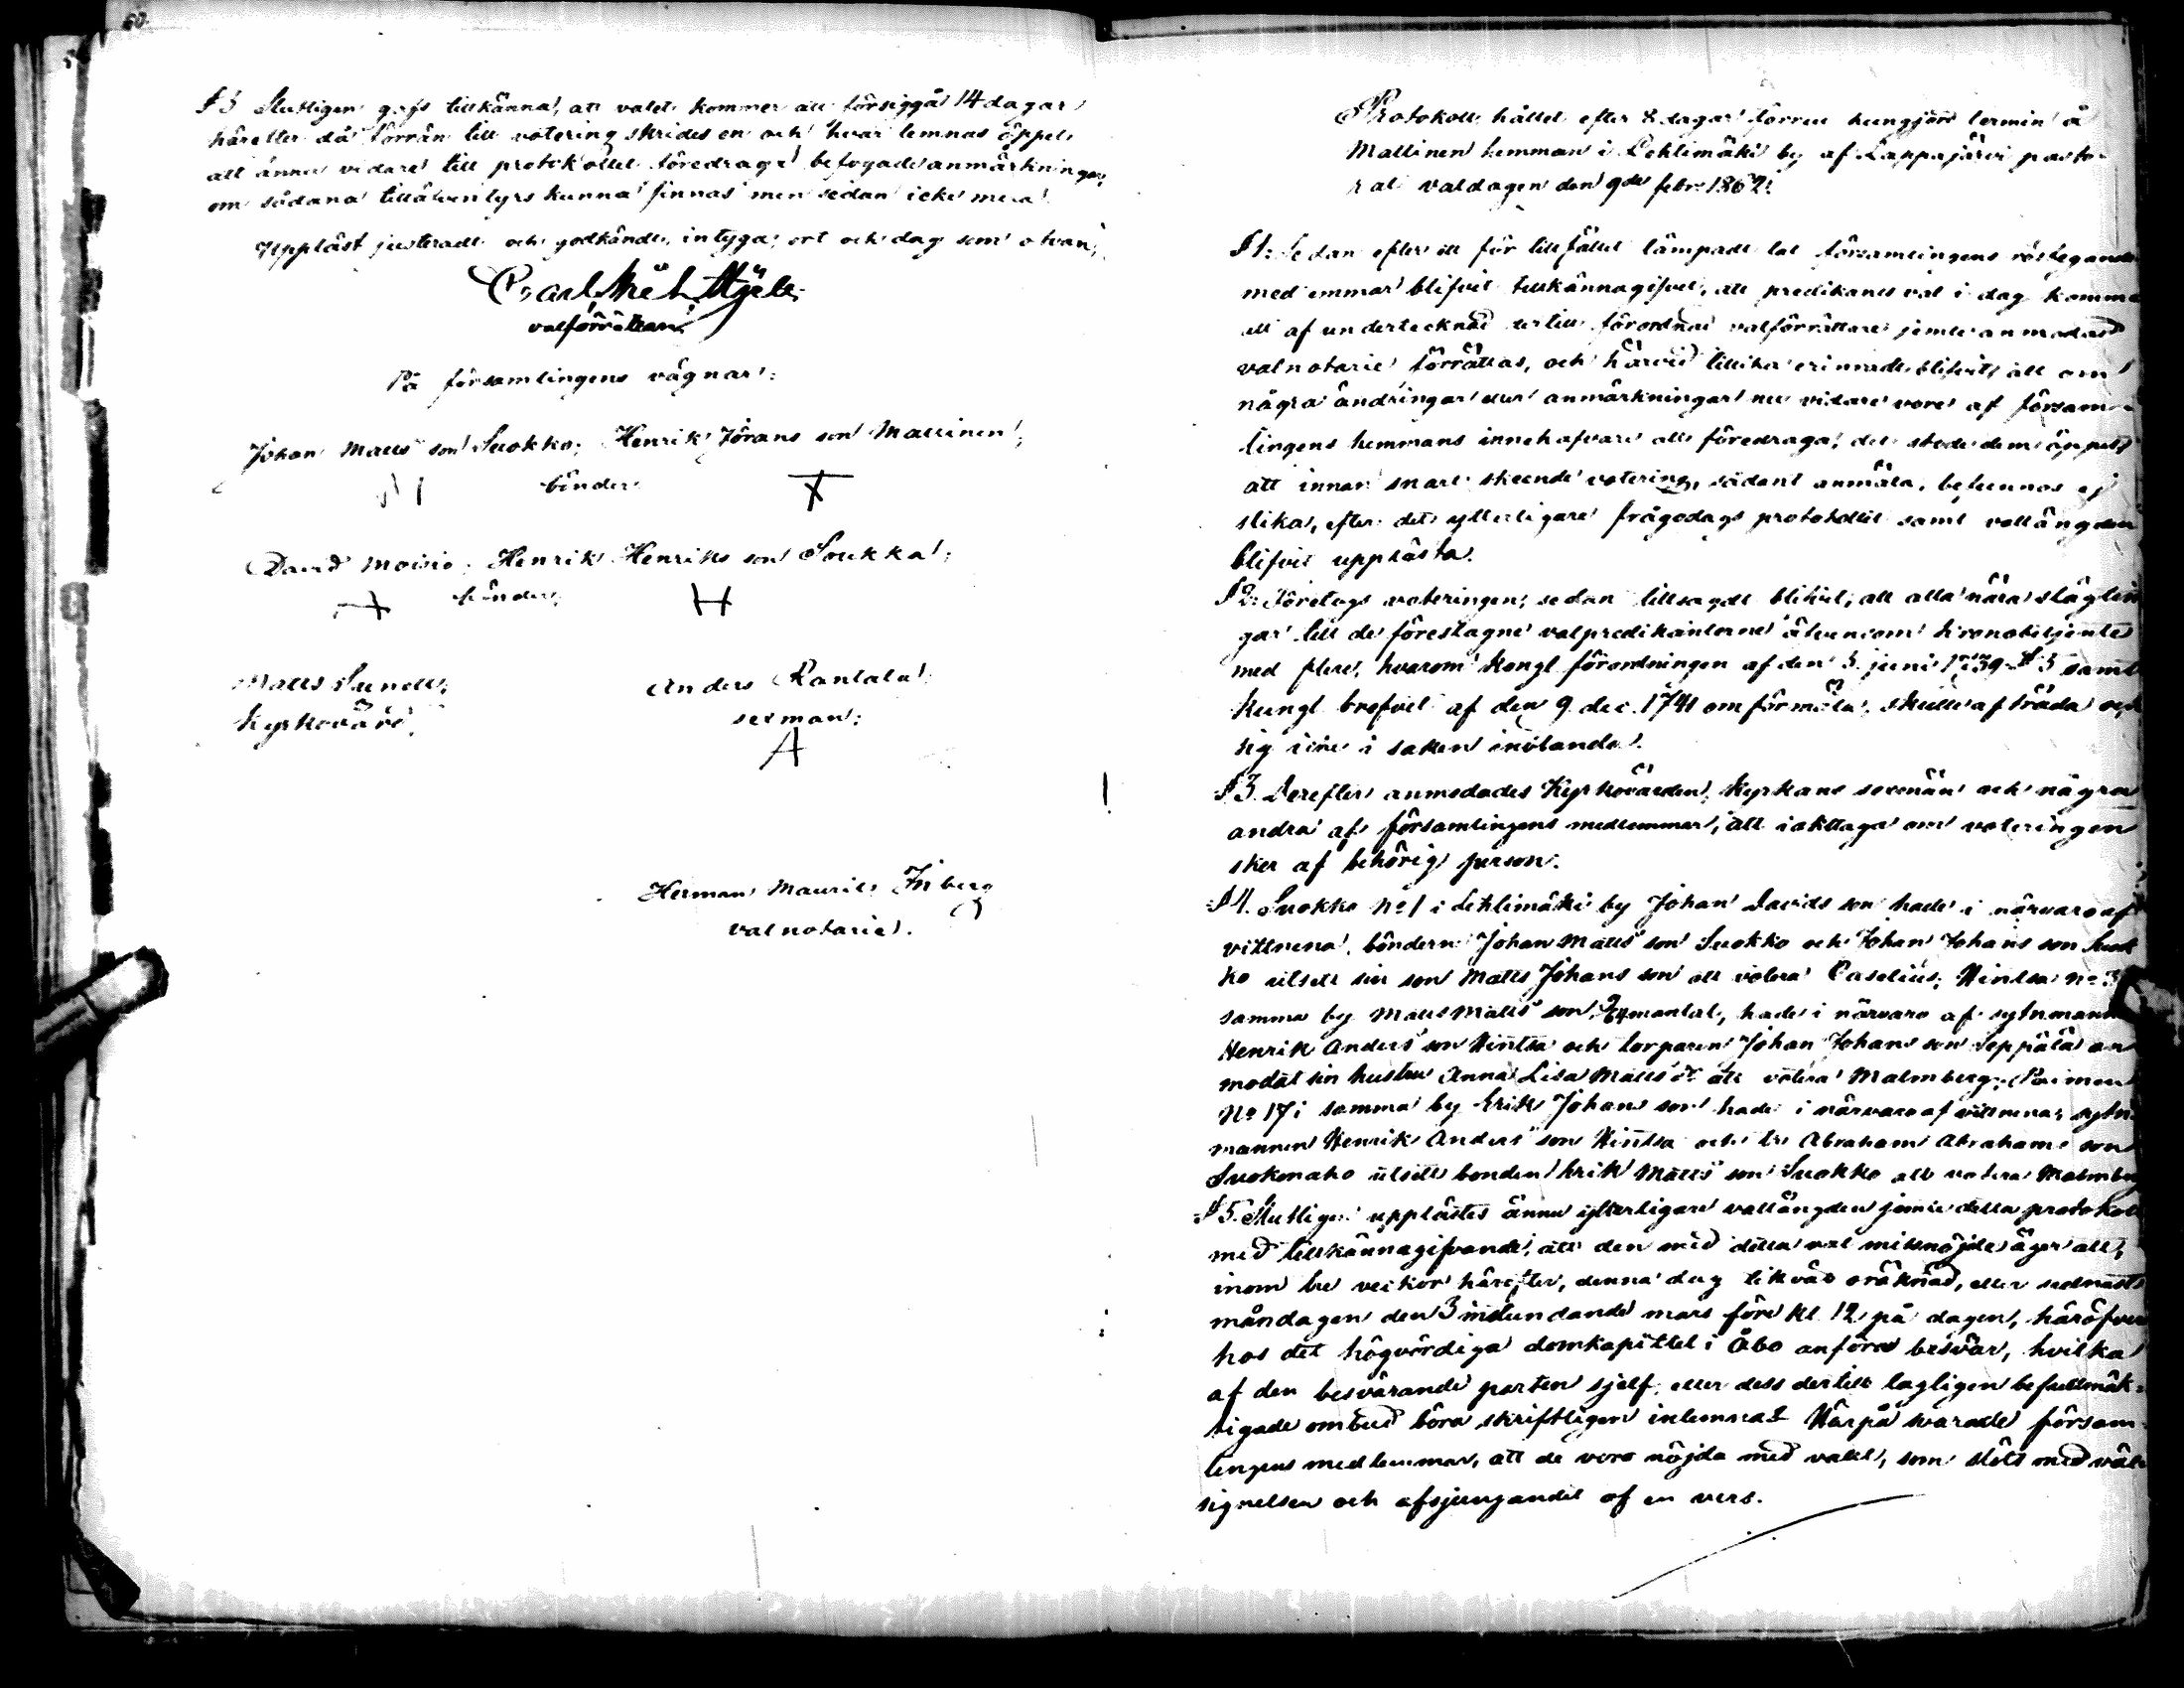 60.
§ 3 Slutligen gafs tillkänna, att valet kommer att försiggå 14 dagar
härefter då förrän till votering skrides en och hvar lemnas öppet
att ännu vidare till protokollet föredraga befogade anmärkningar,
om sådana tilläfventyrs kunna finnas men sedan icke mera.
Uppläst justeradt och godkändt, intyga; ort och dag som ofvan;
Carl
valförrättare
På församlingens vägnar:
Johan Matts son Suokko; Henrik Jörans son Mallinen;
bönder
David Moisio; Henrik Henriks son Soukka;
bönder
Matts Sunell; Anders Rantala
Kyrkovärd. sexman:
A
Herman Maurits Friberg
valnotarie.
Protokoll hållet efter 8 dagar förrut kungjord termin å
Mallinen hemman i Lehtimäki by af Lappajärvi pasto-
rat valdagen den 9de febr. 1862.
§ 1: Sedan efter ett för tillfället lämpadt tal församlingens röstegande
medlemmar blifvit tillkännagifvet, att predikants val i dag komme
att af undertecknad dertill förordnad valförrättare jemte anmodad
valnotarie förrättas, och härvid tillika erinradt blifvit, att om
några ändringar eller anmärkningar nu vidare vore af försam-
lingens hemmans innehafvare att föredraga, det stode dem öppet
att innan snart skeende votering, sådant anmäla, befunnos ej
slika, efter det ytterligare frågodags protokollet samt vallängden
blifvit upplästa.
§ 2: Företogs voteringen, sedan tillsagdt blifvit, att alla nära slägtin
gar till de föreslagne valpredikanterne äfvensom kronobetjente
med flere, hvarom Kongl förordningen af den 5 juni 1739 § 5 samt
Kungl brefvet af den 9 dec. 1741 omförmäla, skulle afträda och
sig icke i saken inblanda.
§ 3. Derefter anmodades Kyrkovärden, kyrkans sexmän och några
andra af församlingens medlemmar, att iakttaga om voteringen
sker af behörig person.
§ 4. Suokko No 1 i Lehtimäki by Johan Davids son hade i närvaro af
vittnena, bönderne Johan Matts son Suokko och Johan Johans son Suok
ko utsett sin son Matts Johans son att votera Caselius; Hintsa No 3
samma by Matts Matts son, mantal, hade i närvaro af sytnemannen
Henrik Anders son Hintsa och torparen Johan Johans son Seppälä an
modat sin hustru Anna Lisa Matts dr att votera Malmberg; Paimen
No 17 i samma by Erik Johans son hade i närvaro af vittnena, sytn-
mannen Henrik Anders son Hintsa och Abraham Abrahams son
Suokonaho utsett bonden Erik Matts son Suokko att votera Malmberg
§ 5. Slutligen upplästes ännu ytterligare vallängden jemte detta protokoll
med tillkännagifvande, att den med detta val missnöjde äger att,
inom tre veckor härefter, denna dag likväl oräknad, eller sednast
måndagen den 3 instundande mars före kl. 12 på dagen, häröfver
hos det högvördiga domkapitlet i Åbo anföra besvär, hvilka
af den besvärande parten sjelf, eller dess dertill lagligen befullmäk-
tigade ombud böra skriftligen inlemnas. Härpå svarade försam-
lingens medlemmar, att de voro nöjda med valet, som slöts med väl-
signelsen och afsjungandet af en vers.